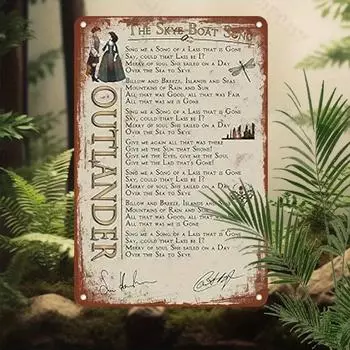 The Skye Boat Song
OUTLANDER
Sing me a Song of a Lass that is Gone
Say, could that Lass be I?
Merry of soul She sailed on a Day
Over the Sea to Skye
Billow and Breeze, Islands and Seas
Mountains of Rain and Sun
All that was Good, all that was Fair
All that was me is Gone
Sing me a Song of a Lass that is Gone
Say, could that Lass be I?
Merry of soul She sailed on a Day
Over the Sea to Skye
Give me again all that was there
Give me the Sun that Shone!
Give me the Eyes, give me the Soul
Give me the Lad that's Gone!
Sing me a Song of a Lass that is Gone
Say, could that Lass be I?
Merry of soul She sailed on a Day
Over the Sea to Skye
Billow and Breeze, Islands and
Mountains of Rain and Sun
All that was Good, all that
All that was me is Gone
Sing me a Song of a Lass that is Gone
Say, could that Lass be I?
Merry of soul She sailed on a Day
Over the Sea to Skye